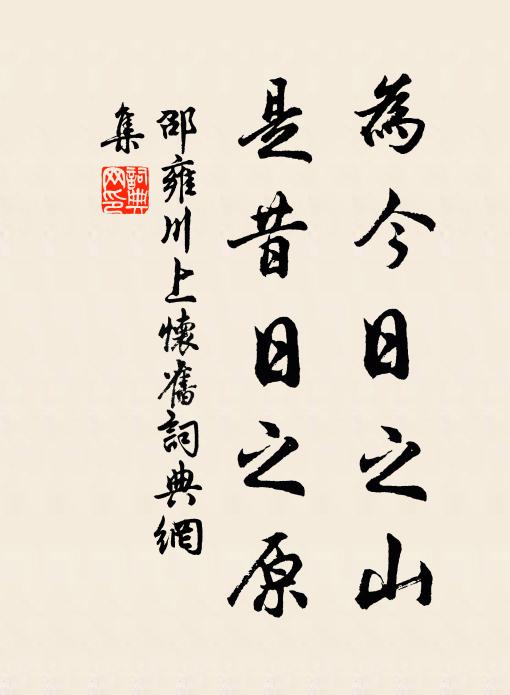 為今日之山
是昔日之原
邵雍川上懷舊詞典網
集
詞典
网印